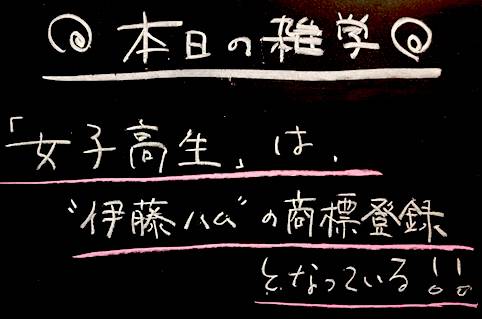 本日の雑学
「女子高生」は、
"伊藤ハム"の商標登録
となっている!!